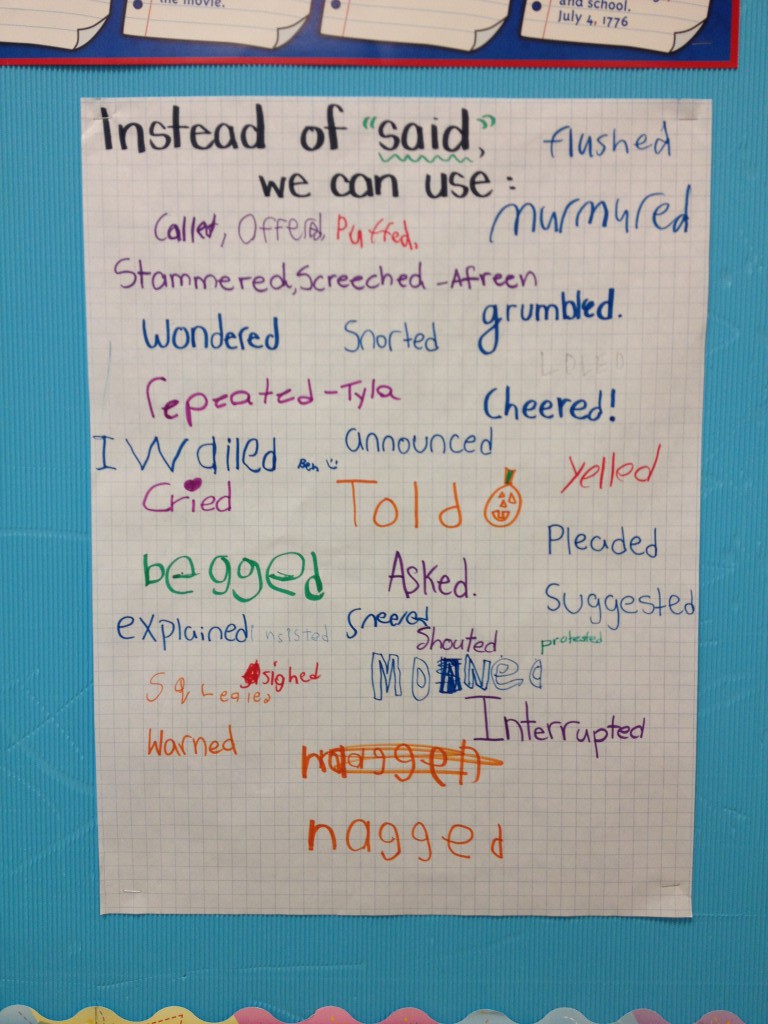 the movie.
and school.
July 4, 1776
Instead of "said,"
we can use:
flushed
Called, Offered, Puffed,
murmured
Stammered, Screeched - Afreen
Wondered
Snorted
grumbled.
repeated - Tyla
Cheered!
I Wailed Ben
announced
yelled
Cried
Told
Pleaded
begged
Asked.
Suggested
explained insisted
Sneered
Shouted
protested
sighed
Moaned
Interrupted
Warned
nagged